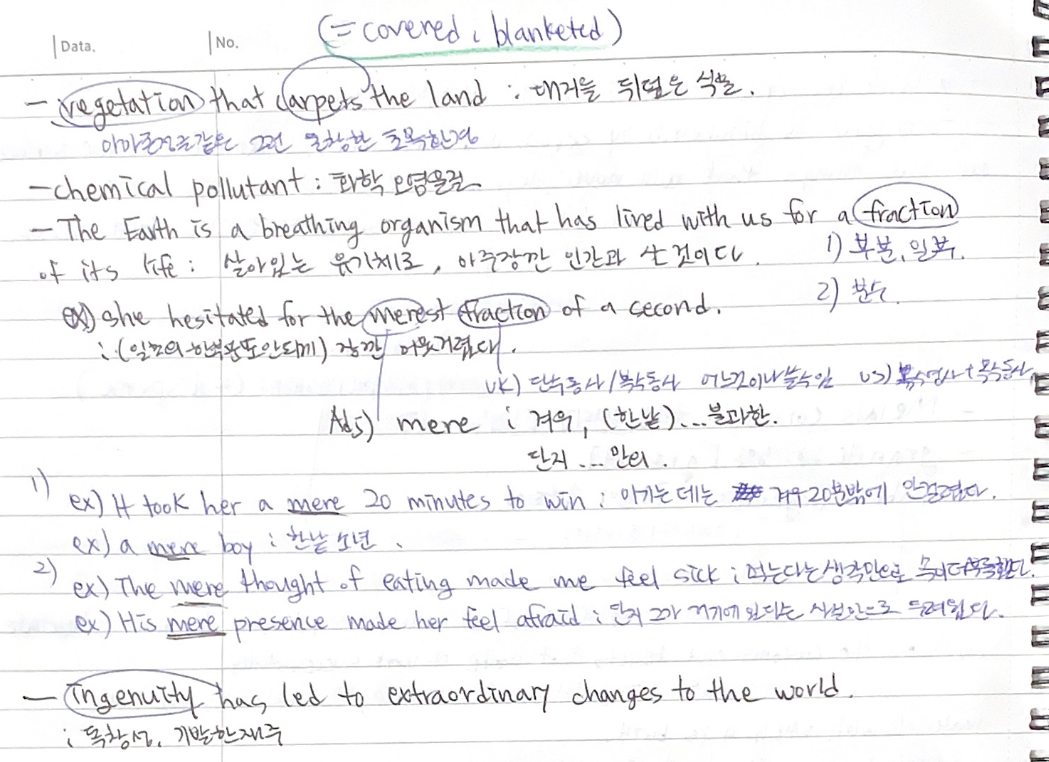 (= covered, blanketed)
Data. No.
- vegetation that carpets the land : 대지를 뒤덮은 식물.
아마존정글같은 그런 울창한 초목환경
- chemical pollutant : 화학 오염물질
- The Earth is a breathing organism that has lived with us for a fraction
of its life : 살아있는 유기체로, 아주잠깐 인간과 산 것이다. 1) 부분, 일부.
2) 분수.
ex) she hesitated for the merest fraction of a second.
: (일초의 한부분도안되게) 잠깐 머뭇거렸다.
UK) 단수동사/복수동사 어느것이나쓸수있 US) 복수명사+복수동사
Adj) mere : 겨우, (한낱)...불과한.
단지 ... 만의.
1) ex) It took her a mere 20 minutes to win : 이기는 데는 겨우20분밖에 안걸렸다.
ex) a mere boy : 한낱 소년.
2) ex) The mere thought of eating made me feel sick : 먹는다는생각만으로
ex) His mere presence made her feel afraid : 단지 그가 거기에 있다는 사실만으로 두려웠다.
- ingenuity has led to extraordinary changes to the world.
: 독창성, 기발한재주